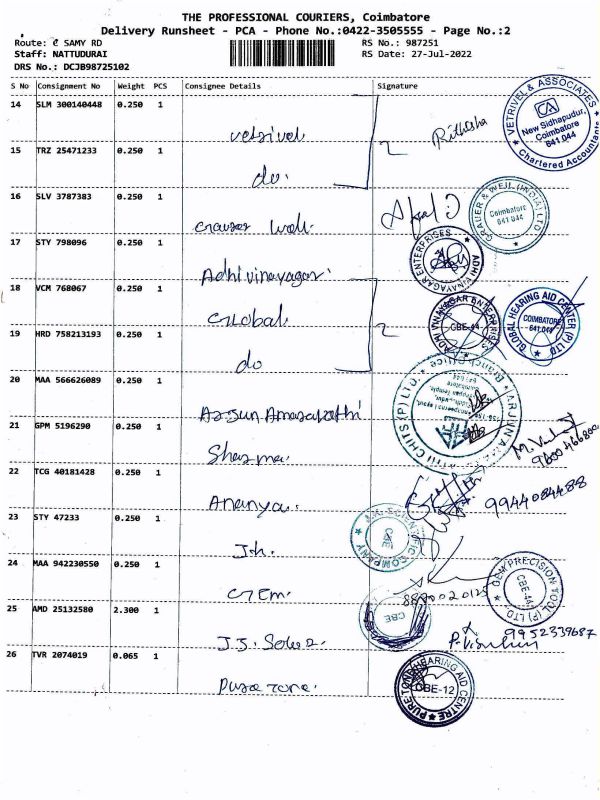 THE PROFESSIONAL COURIERS, Coimbatore
Delivery Runsheet - PCA - Phone No.:0422-3505555 - Page No.:2
Route: C SAMY RD RS No.: 987251
Staff: NATTUDURAI RS Date: 27-Jul-2022
DRS No.: DCJB98725102
S No Consignment No Weight PCS Consignee Details Signature
14 SLM 300140448 0.250 1 vetrivel Rithisha
VETRIVEL & ASSOCIATES CA New Sidhapudur, Coimbatore 641 044 Chartered Accountants
15 TRZ 25471233 0.250 1 do.
16 SLV 3787383 0.250 1 Grauer Weil.
GRAUER & WEIL (INDIA) LTD Coimbatore 641 044
17 STY 798096 0.250 1 Adhivinayagar.
ADHI VINAYAGAR ENTERPRISES
18 VCM 768067 0.250 1 Global.
ADHI VINAYAGAR ENTERPRISES CBE-44
GLOBAL HEARING AID CENTER (P) LTD COIMBATORE 641 044
19 HRD 758213193 0.250 1 do
20 MAA 566626089 0.250 1 Arjun Amarapathi
Branch Office
21 GPM 5196290 0.250 1 Sharma.
22 TCG 40181428 0.250 1 Ananya. 9944084488
23 STY 47233 0.250 1 J.h.
J.H. SCIENTIFIC COMPANY CBE
24 MAA 942230550 0.250 1 GEM.
GEM PRECISION TOOL (P) LTD. CBE-44
25 AMD 25132580 2.300 1 J.J. 9952339687
CBE
26 TVR 2074019 0.065 1 Pure Tone.
PURE TONE HEARING AID CENTRE CBE-12